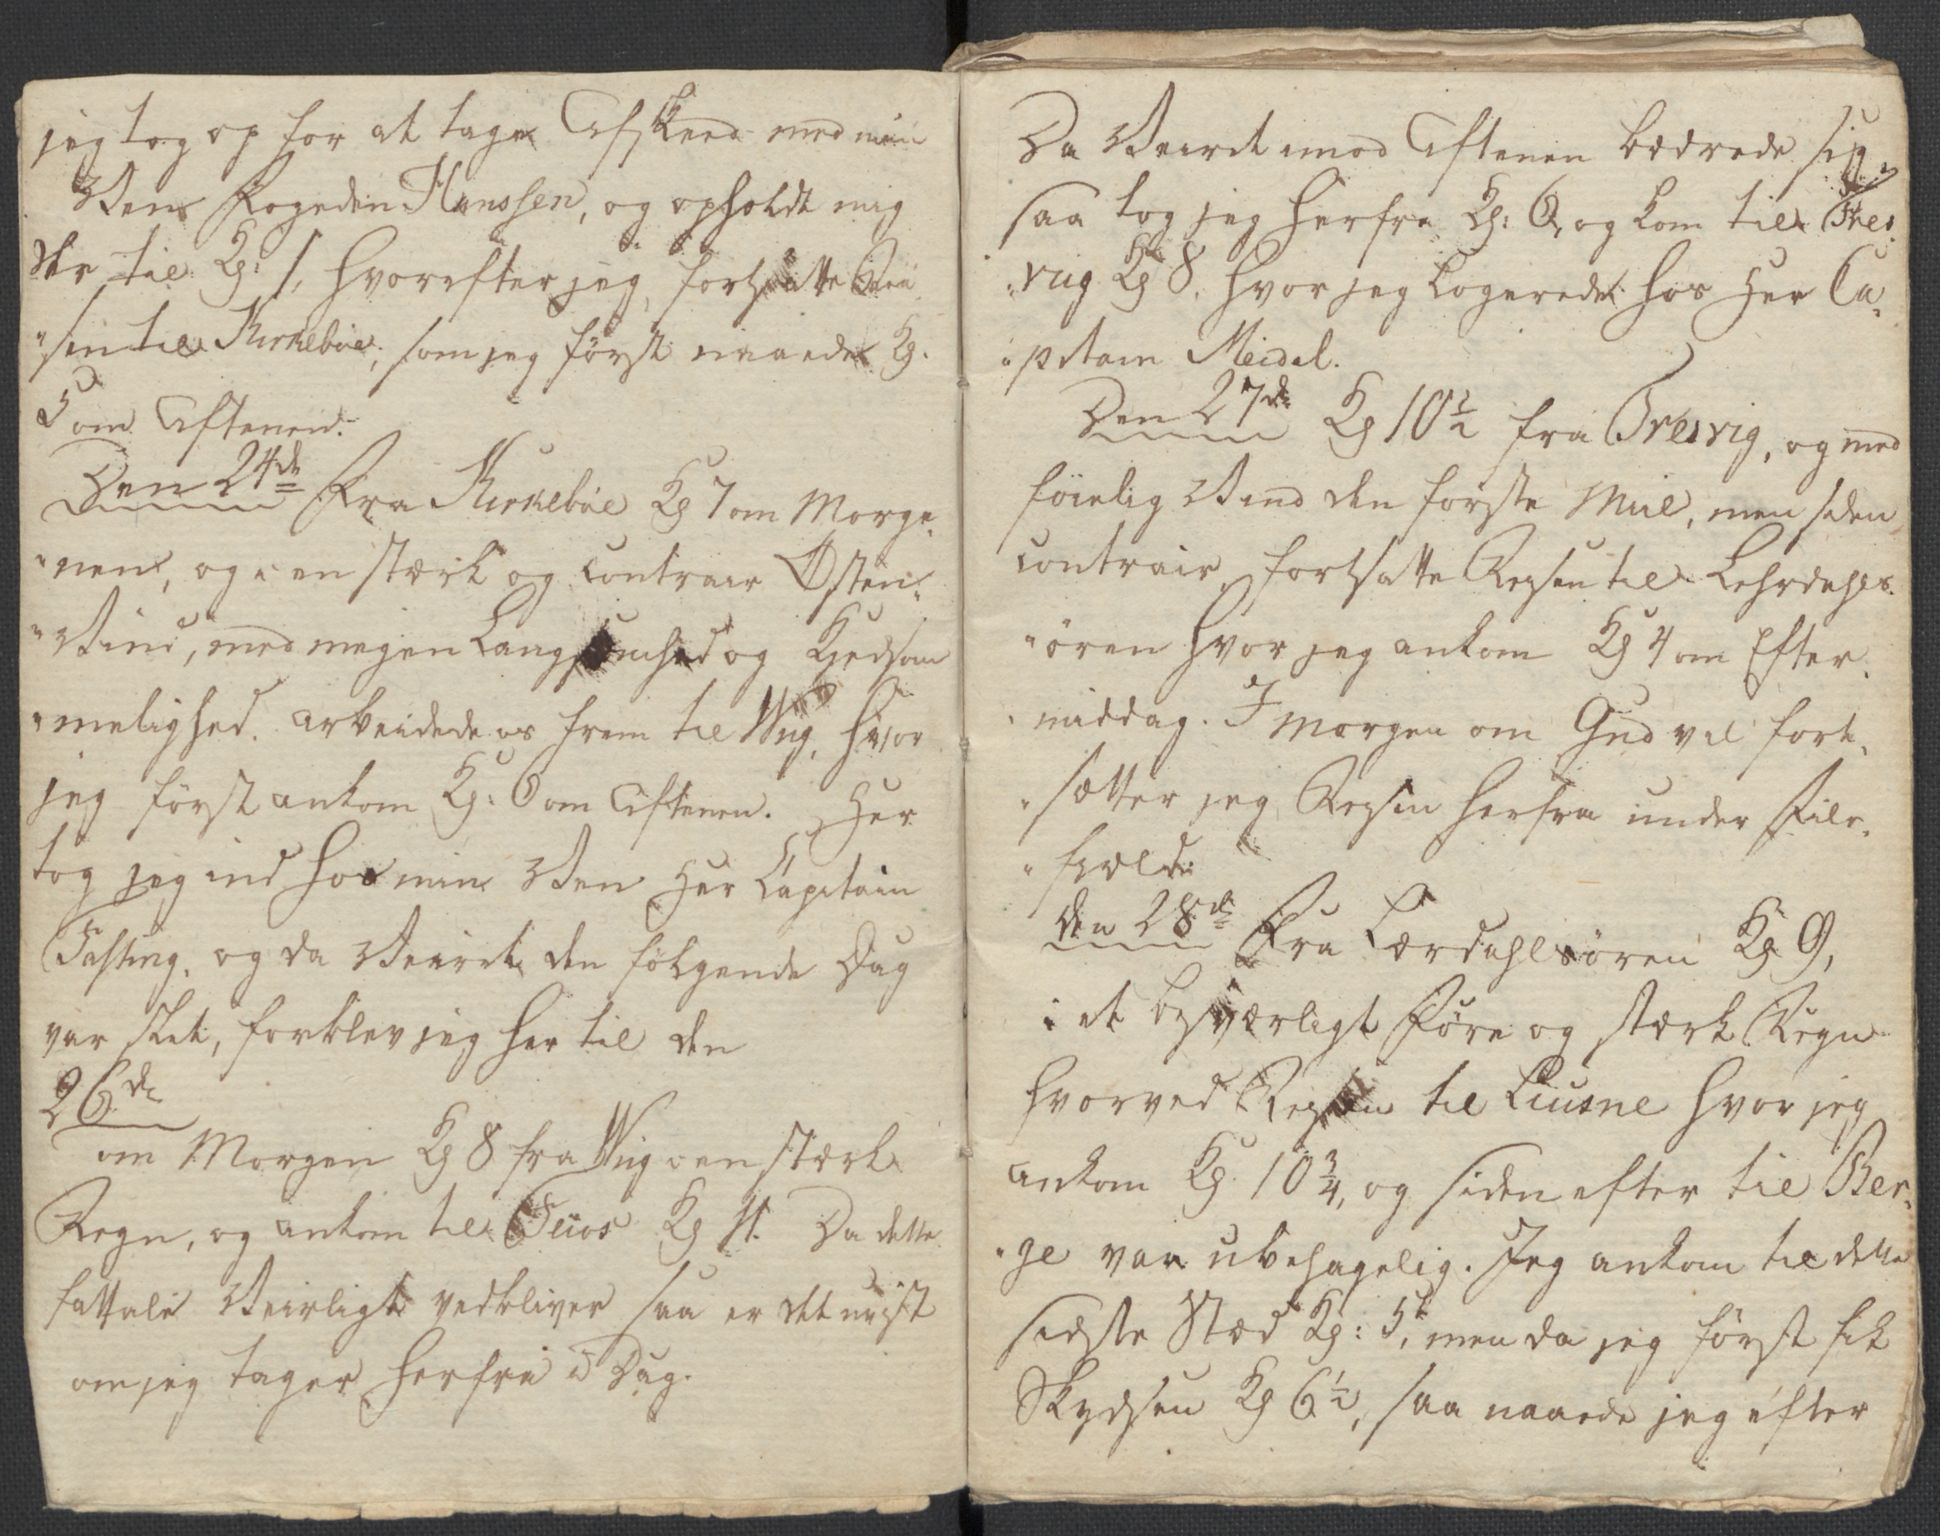 jeg tog op for at tage Afskeed med min
Ven Fogeden Hanssen, og opholdt mig
der til Kl: 1, hvorefter jeg fortsatte Rei
"sen til Kirkeboe, som jeg først naaede Kl.
5 om Aftenen.
Den 24de Fra Kirkeböe Kl 7 om Morge,
"nen, og i en stærk og contrair Østen,
"Vind, med megen Langsomhed og Kjedsom
"melighed. arbeidede os frem til Wiig, hvor
jeg først ankom Kl: 6 om Aftenen. Her
tog jeg ind hos min Ven Herr Capitain
Fasting, og da Veiret den følgende Dag
var slet, forblev jeg her til den
26de
om Morgen Kl 8 fra Wiig i en stærk
Regn, og ankom til Kl 11. Da dette
fattale Veirligt vedbliver saa er det uvist
om jeg tager herfra i Dag.
Da Veiret imod Aftenen bedrede sig,
saa tog jeg herfra Kl: 6, og kom til Fres,
"vig Kl 8, hvor jeg Logerede hos Herr Ca,
"pitain Meidel.
Den 27de Kl 10½ fra Fresvig, og med
föielig Vind den første Miil, men siden
contrair fortsatte Reysen til Lehrdahls,
"ören hvor jeg ankom Kl 4 om Efter,
"middag. I morgen om Gud vil fort,
"sætter jeg Reysen herfra under File,
"field.
den 28de Fra Lærdahlsören Kl 9,
i et besværligt Føre og stærk Regn
hvorved Reysen til Liusne hvor jeg
ankom Kl. 10¾, og siden efter til Bor,
"ge var ubehagelig. Jeg ankom til dette
sidste Stæd Kl: 5, men da jeg først fik
Skydsen Kl 6½, saa naaede jeg efter